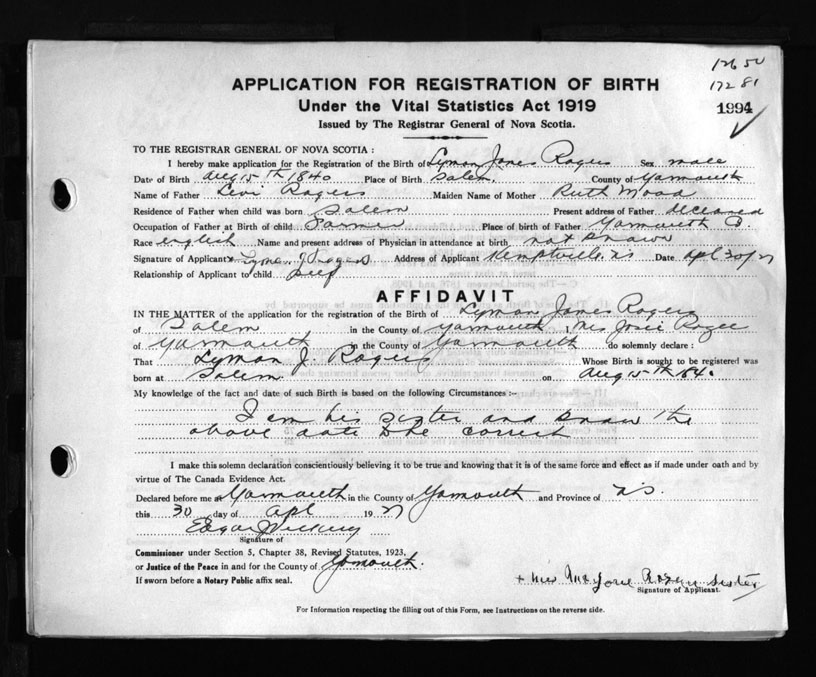 1250
17281
1994
APPLICATION FOR REGISTRATION OF BIRTH
Under the Vital Statistics Act 1919
Issued by The Registrar General of Nova Scotia.
TO THE REGISTRAR GENERAL OF NOVA SCOTIA :
I hereby make application for the Registration of the Birth of Lyman Jones Rogers Sex male
Date of Birth Aug 15th 1840 Place of Birth Salem, County of Yarmouth
Name of Father Levi Rogers Maiden Name of Mother Ruth Mood
Residence of Father when child was born Salem Present address of Father deceased
Occupation of Father at Birth of child Farmer Place of birth of Father Yarmouth
Race English Name and present address of Physician in attendance at birth not known
Signature of Applicant x Lyman J Rogers Address of Applicant Kemptville, NS Date Apl 30/27
Relationship of Applicant to child Self
AFFIDAVIT
IN THE MATTER of the application for the registration of the Birth of Lyman Jones Rogers
of Salem in the County of Yarmouth I, Mrs Josie
of Yarmouth in the County of Yarmouth do solemnly declare :
That Lyman J. Rogers Whose Birth is sought to be registered was
born at Salem on Aug 15th 1840
My knowledge of the fact and date of such Birth is based on the following Circumstances :-
I am his sister and know the
above date to be correct
I make this solemn declaration conscientiously believing it to be true and knowing that it is of the same force and effect as if made under oath and by
virtue of The Canada Evidence Act.
Declared before me at Yarmouth in the County of Yarmouth and Province of NS.
this 30 day of Apl 1927
Edgar
Signature of
Commissioner under Section 5, Chapter 38, Revised Statutes, 1923,
or Justice of the Peace in and for the County of Yarmouth.
If sworn before a Notary Public affix seal.
x Mrs Josie Rogers sister
Signature of Applicant.
For Information respecting the filling out of this Form, see Instructions on the reverse side.